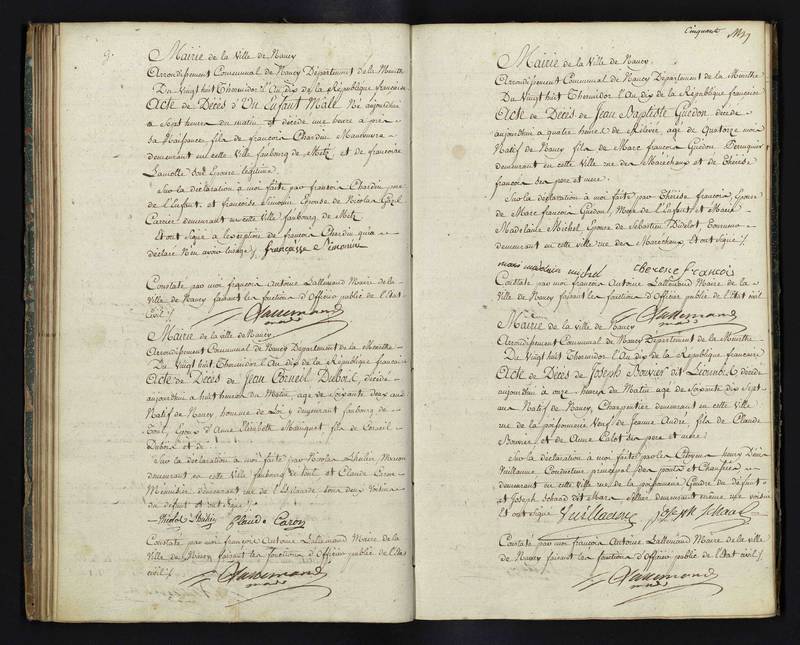 9.
Mairie de la Ville de Nancy
Arrondissement Communal de Nancy Département de la Meurthe
Du Vingt huit Thermidor l'An dix de la République française
Acte de Décès d'Un Enfant Mâle Né aujourdhui
à Sept heures du matin et décédé une heure après
sa Naissance, fils de françois Chardin Manœuvre
demeurant en cette Ville faubourg de Metz et de françoise
son Epouse légitime
Sur la déclaration à moi faite par françois Chardin père
de l'Enfant, et françoise Simonin Epouse de Nicolas
Carrier demeurant en cette Ville faubourg de Metz
Et ont Signé à l'exception de françois Chardin qui a
déclaré N'en avoir l'usage /. françoise Simonin
Constaté par moi françois Antoine Lallemand Maire de la
Ville de Nancy faisant les fonctions d'Officier public de l'Etat
Civil /. Lallemand
maire
Mairie de la ville de Nancy
Arrondissement Communal de Nancy Département de la Meurthe
Du Vingt huit Thermidor l'An dix de la République française
Acte de Décès de Jean Corneil Dubois, décédé
aujourdhui à huit heures du Matin, agé de Soixante deux ans
Natif de Nancy, homme de Loi, demeurant faubourg de
Toul, Epoux d'Anne Elizabeth fils de Corneil
Dubois et de
Sur la déclaration à moi faite par Nicolas Maçon
demeurant en cette Ville faubourg de toul et Claude Caron
Menuisier demeurant rue de l'Esplanade tous deux Voisins
du défunt et ont signé /.
Nicolas Claude Caron
Constaté par moi françois Antoine Lallemand Maire de la
Ville de Nancy, faisant les fonctions d'Officier public de l'Etat
civil /. Lallemand
maire
Cinquante
Mairie de la Ville de Nancy
Arrondissement Communal de Nancy Département de la Meurthe
Du Vingt huit Thermidor l'An dix de la République française
Acte de Décès de Jean Baptiste Guedon décédé
aujourdhui à quatre heures de Relevée, agé de Quatorze mois
Natif de Nancy fils de Marc françois Guedon Perruquier
demeurant en cette Ville rue des Maréchaux et de Thérèse
françois ses pere et mere
Sur la déclaration à moi faite par Thérèse françois, Epouse
de Marc françois Guedon, Mere de l'Enfant et Marie
Madelaine Michel, Epouse de Sebastien Didelot, Tourneur
demeurant en cette ville rue des Maréchaux, Et ont Signé /.
mari madelain michel therese francois
Constaté par moi françois Antoine Lallemand Maire de la
Ville de Nancy faisant les fonctions d'Officier public de l'Etat civil
Lallemand
maire
Mairie de la Ville de Nancy
Arrondissement Communal de Nancy Département de la Meurthe
Du Vingt huit Thermidor l'An dix de la République française
Acte de Décès de Joseph Bouvier dit décédé
aujourdhui à onze heures du Matin agé de Soixante dix Sept
ans Natif de Nancy, Charpentier demeurant en cette Ville
rue de la poissonnerie Veuf de Jeanne André, fils de Claude
Bouvier et de Anne Calot ses pere et mere /.
Sur la déclaration à moi faite par le Citoyen henry
Vuillaume Conducteur principal des ponts et Chaussées
demeurant en cette Ville rue de la poissonnerie Gendre du défunt
et Joseph dit Marc Sellier demeurant même rue voisin
Et ont Signé Vuillaume joseph
Constaté par moi françois Antoine Lallemand Maire de la ville
de Nancy faisant les fonctions d'Officier public de l'Etat civil /.
Lallemand
maire